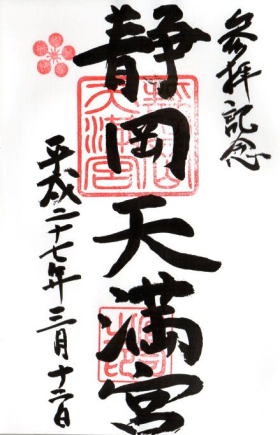 参拝記念
静岡天満宮
平成二十七年三月十六日